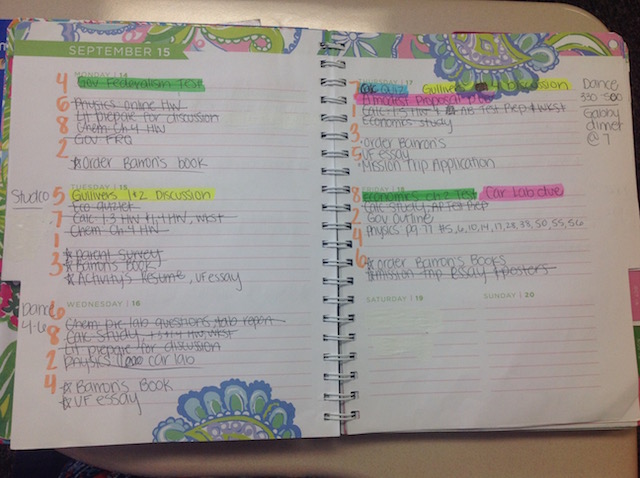 SEPTEMBER 15
MONDAY | 14
4 Gov Federalism Test
6 Physics online HW
Lit prepare for discussion
8 Chem Ch.4 HW
Gov FRQ
2
☆order Barron's book
TUESDAY | 15
Studco 5 Gullivers 1+2 Discussion
Eco quizlet
7 Calc 1.3 HW 1.4 HW, wkst
1 Chem Ch.4 HW
☆parent survey
3 ☆Barron's Book
☆Activity's Resume, UF essay
WEDNESDAY | 16
Dance 6
4-6
Chem pre lab questions, lab report
8 Calc Study, 1.3+1.4 HW, wkst
Lit prepare for discussion
2 Physics car lab
4 ☆Barron's Book
☆UF essay
THURSDAY | 17
7 Calc Quiz Gullivers 4 Discussion
A modest Proposal
1 Calc 1.5 HW AB Test Prep wkst
Economics Study
3 order Barron's
UF essay
5 Mission Trip Application
Dance
330-500
dinner
@ 7
FRIDAY | 18
8 Economics ch.2 Test Car Lab due
Calc Study, AP Test Prep
2 Gov outline
4 Physics pg 77 #5, 6, 10, 14, 17, 28, 33, 50, 55, 56
6 ☆order Barron's Books
☆Mission trip essay + posters
SATURDAY | 19
SUNDAY | 20